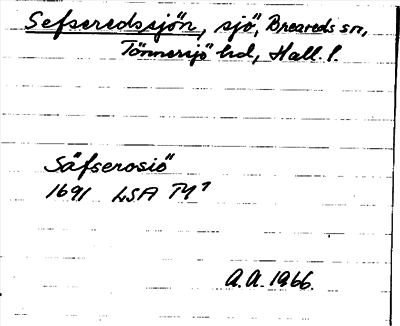 Sefseredssjön, sjö, Breareds sn,
Tönnersjö hd, Hall. l.
Säfserosiö
1691 LSA TY 7
A.A. 1966.